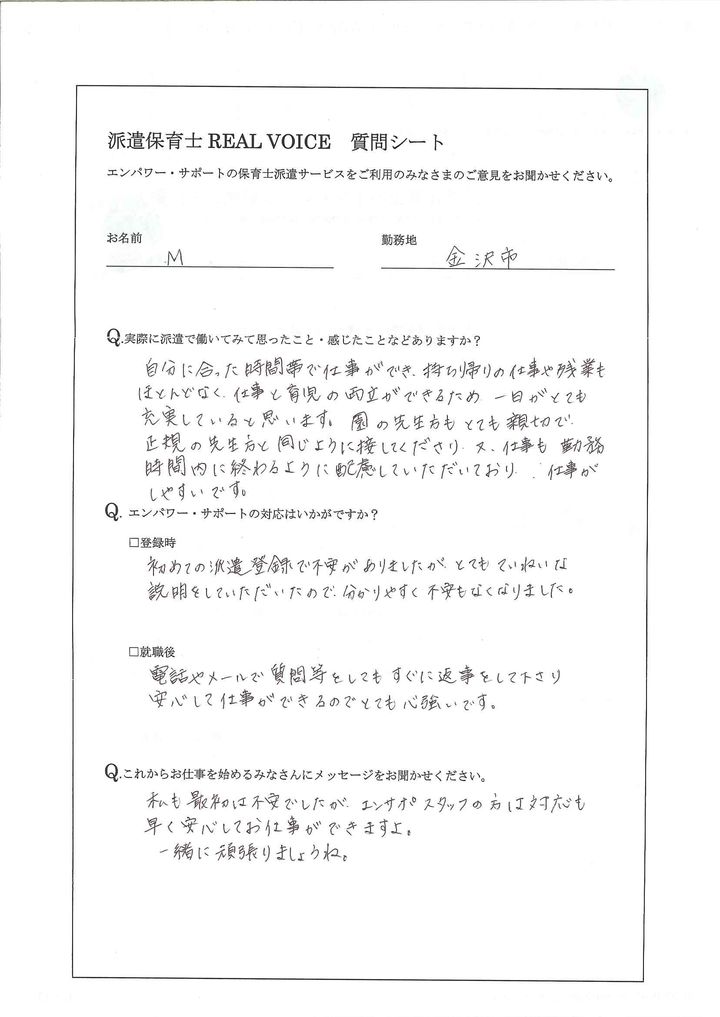 派遣保育士 REAL VOICE 質問シート
エンパワー・サポートの保育士派遣サービスをご利用のみなさまのご意見をお聞かせください。
お名前 M 勤務地 金沢市
Q.実際に派遣で働いてみて思ったこと・感じたことなどありますか？
自分に合った時間帯で仕事ができ、持ち帰りの仕事や残業も
ほとんどなく、仕事と育児の両立ができるため 一日がとても
充実していると思います。園の先生方もとても親切で
正規の先生方と同じように接してくださり、又、仕事も勤務
時間内に終わるように配慮していただいており、仕事が
しやすいです。
Q.エンパワー・サポートの対応はいかがですか？
□登録時
初めての派遣登録で不安がありましたが、とてもていねいな
説明をしていただいたので、分かりやすく不安もなくなりました。
□就職後
電話やメールで質問等をしてもすぐに返事をして下さり
安心して仕事ができるのでとても心強いです。
Q.これからお仕事を始めるみなさんにメッセージをお聞かせください。
私も最初は不安でしたが、エンサポスタッフの方は対応も
早く安心してお仕事ができますよ。
一緒に頑張りましょうね。